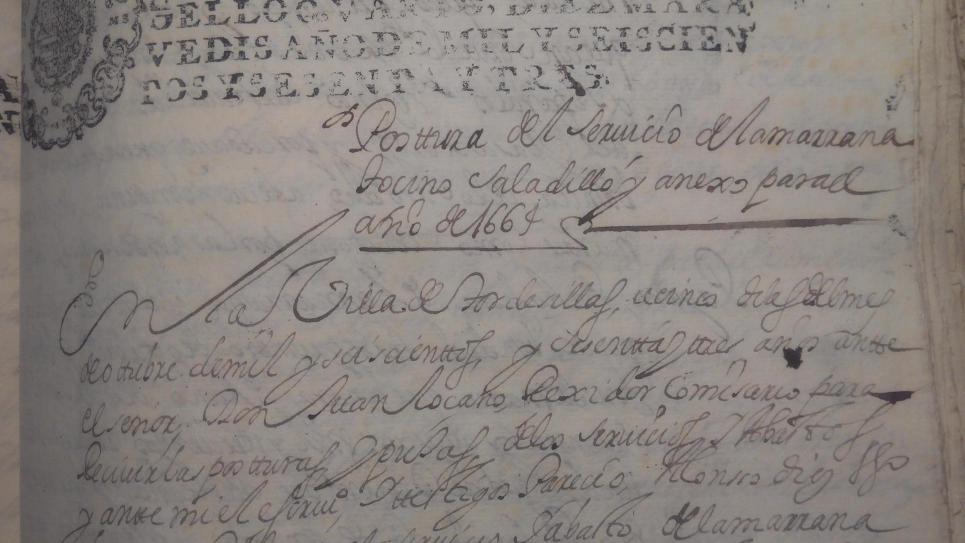 SELLO QVARTO, DIEZ MARA
VEDIS AÑO DE MIL Y SEISCIEN
TOS Y SESENTA Y TRES.
Posttura del seruiçio de la marrana
toçino saladillo y anexo para el
año de 1664
En la Villa de tordesillas, a cinco dias del mes
de ottubre de mil y seiscienttos y sesentta y tres años antte
el señor Don Juan loçano Rexidor Comisario para
Reciuir las postturas y pujas de los seruiçios y Abastos
y ante mi el escriuº y testigos Pareçio, Alonso diez
Abasto de la marrana